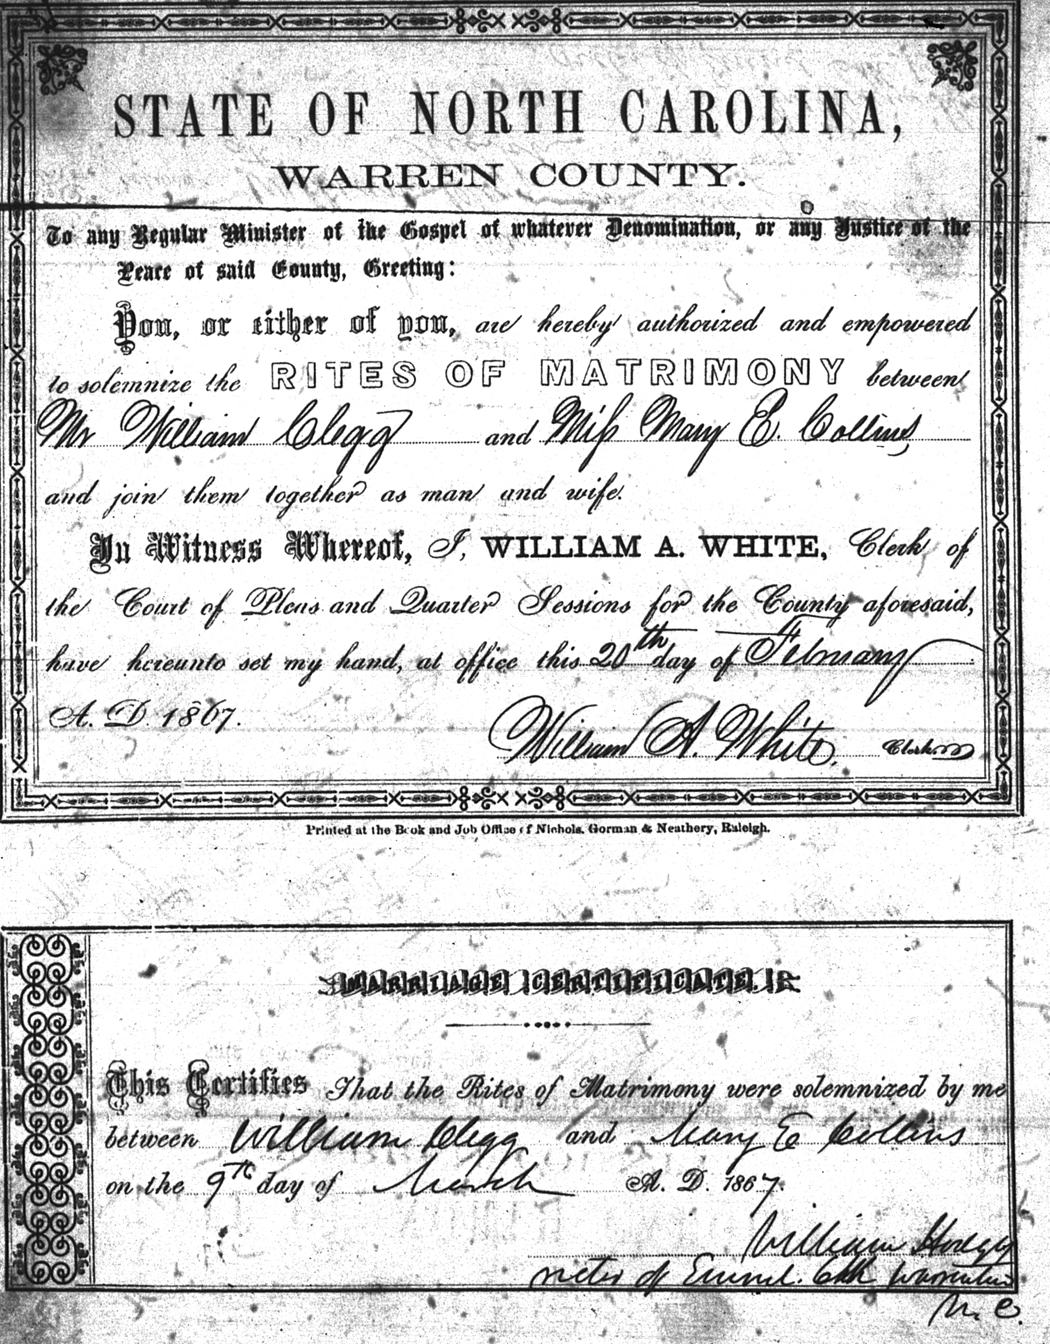 STATE OF NORTH CAROLINA,
WARREN COUNTY.
To any Regular Minister of the Gospel of whatever Denomination, or any Justice of the
Peace of said County, Greeting:
You, or either of you, are hereby authorized and empowered
to solemnize the RITES OF MATRIMONY between
Mr William Clegg and Miss Mary E. Collins
and join them together as man and wife.
In Witness Whereof, I, WILLIAM A. WHITE, Clerk of
the Court of Pleas and Quarter Sessions for the County aforesaid,
have hereunto set my hand, at office this 20th day of February
A. D. 1867.
William A. White. Clerk
Printed at the Book and Job Office of Nichols, Gorman & Neathery, Raleigh.
MARRIAGE CERTIFICATE.
This Certifies That the Rites of Matrimony were solemnized by me
between William Clegg and Mary E Collins
on the 9th day of March A. D. 1867.
William Hodges
of Emml. Warrenton
N. C.